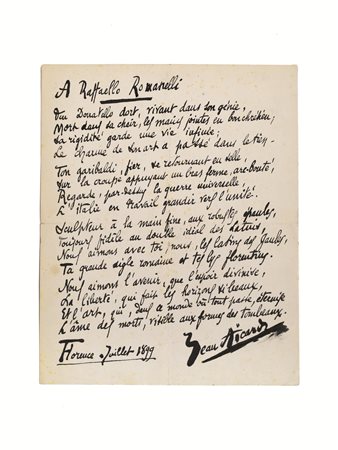 A Raffaello Romanelli
Ton Donatello dort, vivant dans son génie,
Mort dans sa chair, les mains jointes en bon chrétien;
Sa rigidité garde une vie infinie;
Le charme de son art a passé dans le tien.
Ton garibaldi, fier, se retournant en selle,
Sur la croupe appuyant un bras ferme, arc-bouté,
Regarde, par-dessus la guerre universelle,
L'Italie en travail grandir vers l'unité.
Sculpteur à la main fine, aux robustes épaules,
Toujours fidèle au double idéal des Latins,
Nous aimons avec toi, nous, les latins des Gaules,
Ta grande aigle romaine et tes lys florentins.
Nous aimons l'avenir, que l'espoir divinise,
La liberté, qui fait les horizons si beaux,
Et l'art, qui, dans ce monde où tout passe, éternise
L'âme des morts, visible aux formes des tombeaux.
Florence Juillet 1899
Jean Aicard